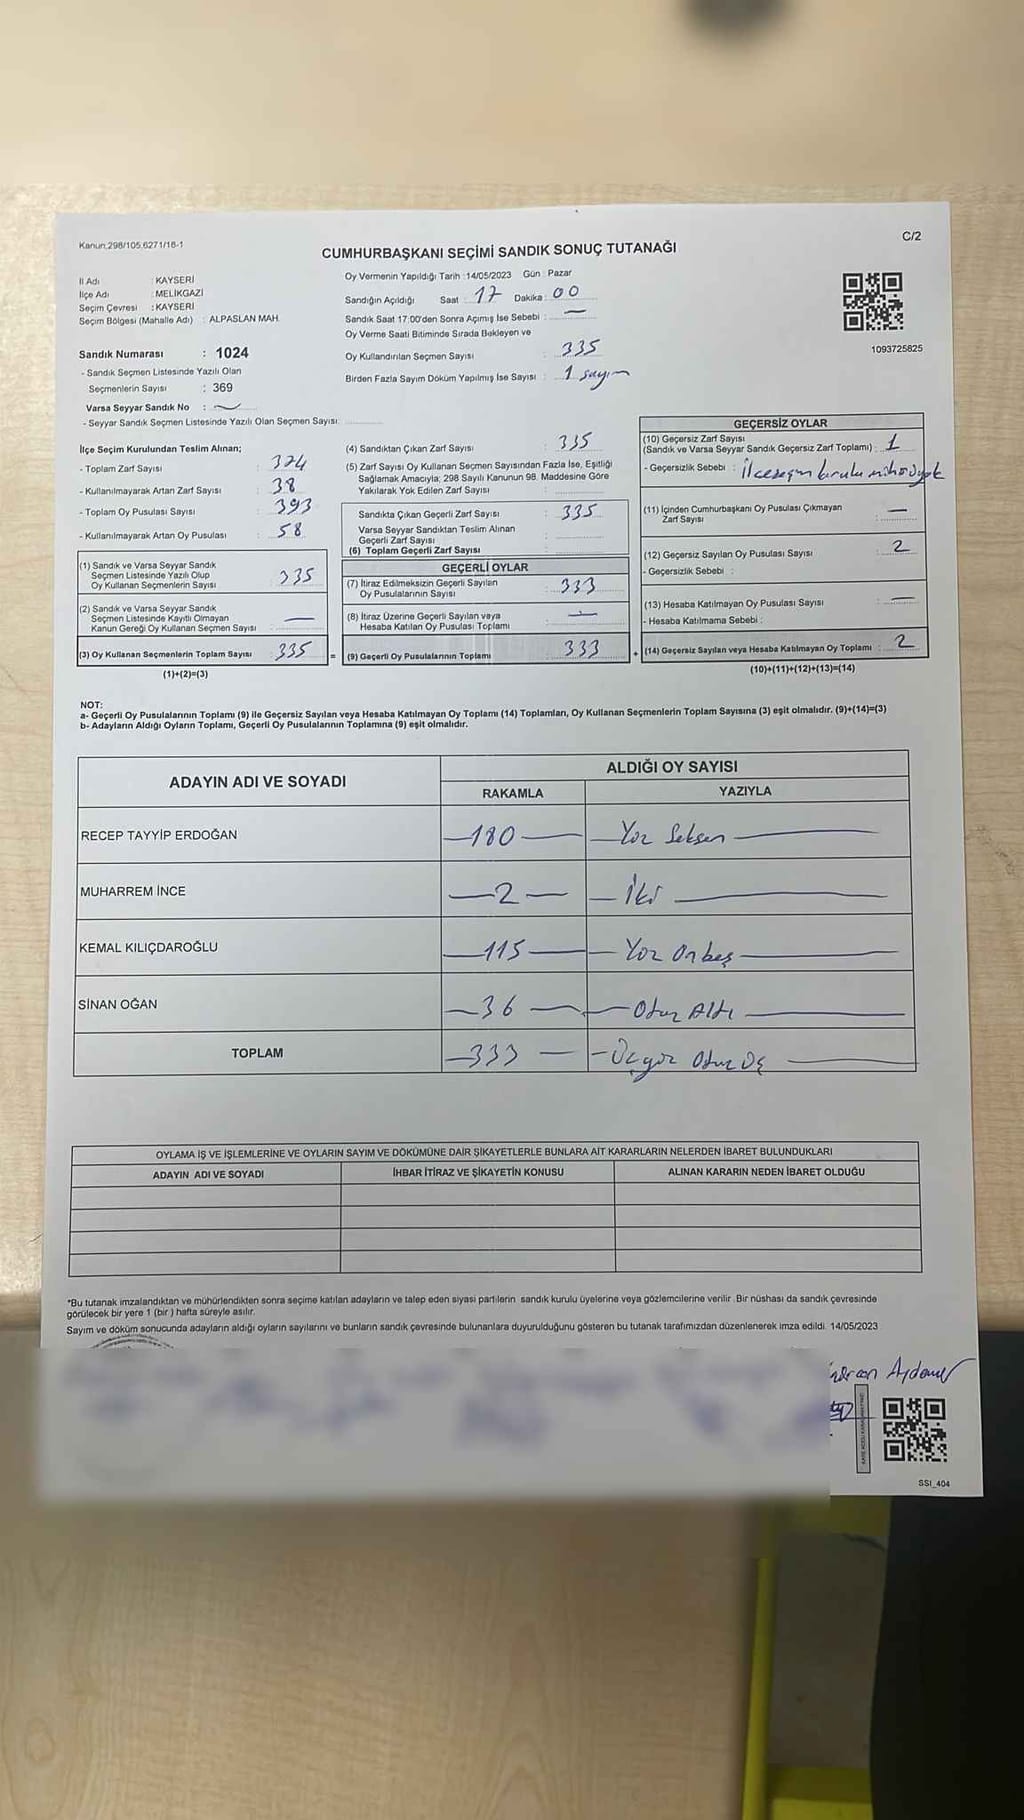 Kanun.298/105,6271/16-1
C/2
CUMHURBAŞKANI SEÇİMİ SANDIK SONUÇ TUTANAĞI
İl Adı : KAYSERİ
İlçe Adı : MELİKGAZİ
Seçim Çevresi : KAYSERİ
Seçim Bölgesi (Mahalle Adı) : ALPASLAN MAH.
Sandık Numarası : 1024
- Sandık Seçmen Listesinde Yazılı Olan
Seçmenlerin Sayısı : 369
Varsa Seyyar Sandık No :
- Seyyar Sandık Seçmen Listesinde Yazılı Olan Seçmen Sayısı:
Oy Vermenin Yapıldığı Tarih :14/05/2023 Gün : Pazar
Sandığın Açıldığı Saat : 17 Dakika : 00
Sandık Saat 17:00'den Sonra Açımış İse Sebebi : —
Oy Verme Saati Bitiminde Sırada Bekleyen ve
Oy Kullandırılan Seçmen Sayısı : 335
Birden Fazla Sayım Döküm Yapılmış İse Sayısı : 1 sayım
1093725825
İlçe Seçim Kurulundan Teslim Alınan;
- Toplam Zarf Sayısı : 374
- Kullanılmayarak Artan Zarf Sayısı : 38
- Toplam Oy Pusulası Sayısı : 393
- Kullanılmayarak Artan Oy Pusulası : 58
(1) Sandık ve Varsa Seyyar Sandık
Seçmen Listesinde Yazılı Olup
Oy Kullanan Seçmenlerin Sayısı : 335
(2) Sandık ve Varsa Seyyar Sandık
Seçmen Listesinde Kayıtlı Olmayan
Kanun Gereği Oy Kullanan Seçmen Sayısı : —
(3) Oy Kullanan Seçmenlerin Toplam Sayısı : 335 =
(1)+(2)=(3)
(4) Sandıktan Çıkan Zarf Sayısı : 335
(5) Zarf Sayısı Oy Kullanan Seçmen Sayısından Fazla İse, Eşitliği
Sağlamak Amacıyla; 298 Sayılı Kanunun 98. Maddesine Göre
Yakılarak Yok Edilen Zarf Sayısı :
Sandıkta Çıkan Geçerli Zarf Sayısı : 335
Varsa Seyyar Sandıktan Teslim Alınan
Geçerli Zarf Sayısı :
(6) Toplam Geçerli Zarf Sayısı :
GEÇERLİ OYLAR
(7) İtiraz Edilmeksizin Geçerli Sayılan
Oy Pusulalarının Sayısı : 333
(8) İtiraz Üzerine Geçerli Sayılan veya
Hesaba Katılan Oy Pusulası Toplamı : —
(9) Geçerli Oy Pusulalarının Toplamı : 333 +
GEÇERSİZ OYLAR
(10) Geçersiz Zarf Sayısı
(Sandık ve Varsa Seyyar Sandık Geçersiz Zarf Toplamı) : 1
- Geçersizlik Sebebi : İlçe seçim kurulu mührü yok
(11) İçinden Cumhurbaşkanı Oy Pusulası Çıkmayan
Zarf Sayısı : —
(12) Geçersiz Sayılan Oy Pusulası Sayısı : 2
- Geçersizlik Sebebi :
(13) Hesaba Katılmayan Oy Pusulası Sayısı : —
- Hesaba Katılmama Sebebi :
(14) Geçersiz Sayılan veya Hesaba Katılmayan Oy Toplamı : 2
(10)+(11)+(12)+(13)=(14)
NOT:
a- Geçerli Oy Pusulalarının Toplamı (9) ile Geçersiz Sayılan veya Hesaba Katılmayan Oy Toplamı (14) Toplamları, Oy Kullanan Seçmenlerin Toplam Sayısına (3) eşit olmalıdır. (9)+(14)=(3)
b- Adayların Aldığı Oyların Toplamı, Geçerli Oy Pusulalarının Toplamına (9) eşit olmalıdır.
ADAYIN ADI VE SOYADI ALDIĞI OY SAYISI
RAKAMLA YAZIYLA
RECEP TAYYİP ERDOĞAN —180— —Yüz Seksen—
MUHARREM İNCE —2— —İki—
KEMAL KILIÇDAROĞLU —115— —Yüz Onbeş—
SİNAN OĞAN —36— —Otuz Altı—
TOPLAM —333— —Üçyüz Otuz Üç—
OYLAMA İŞ VE İŞLEMLERİNE VE OYLARIN SAYIM VE DÖKÜMÜNE DAİR ŞİKAYETLERLE BUNLARA AİT KARARLARIN NELERDEN İBARET BULUNDUKLARI
ADAYIN ADI VE SOYADI İHBAR İTİRAZ VE ŞİKAYETİN KONUSU ALINAN KARARIN NEDEN İBARET OLDUĞU
*Bu tutanak imzalandıktan ve mühürlendikten sonra seçime katılan adayların ve talep eden siyasi partilerin sandık kurulu üyelerine veya gözlemcilerine verilir .Bir nüshası da sandık çevresinde
görülecek bir yere 1 (bir ) hafta süreyle asılır.
Sayım ve döküm sonucunda adayların aldığı oyların sayılarını ve bunların sandık çevresinde bulunanlara duyurulduğunu gösteren bu tutanak tarafımızdan düzenlenerek imza edildi. 14/05/2023
SSI_404